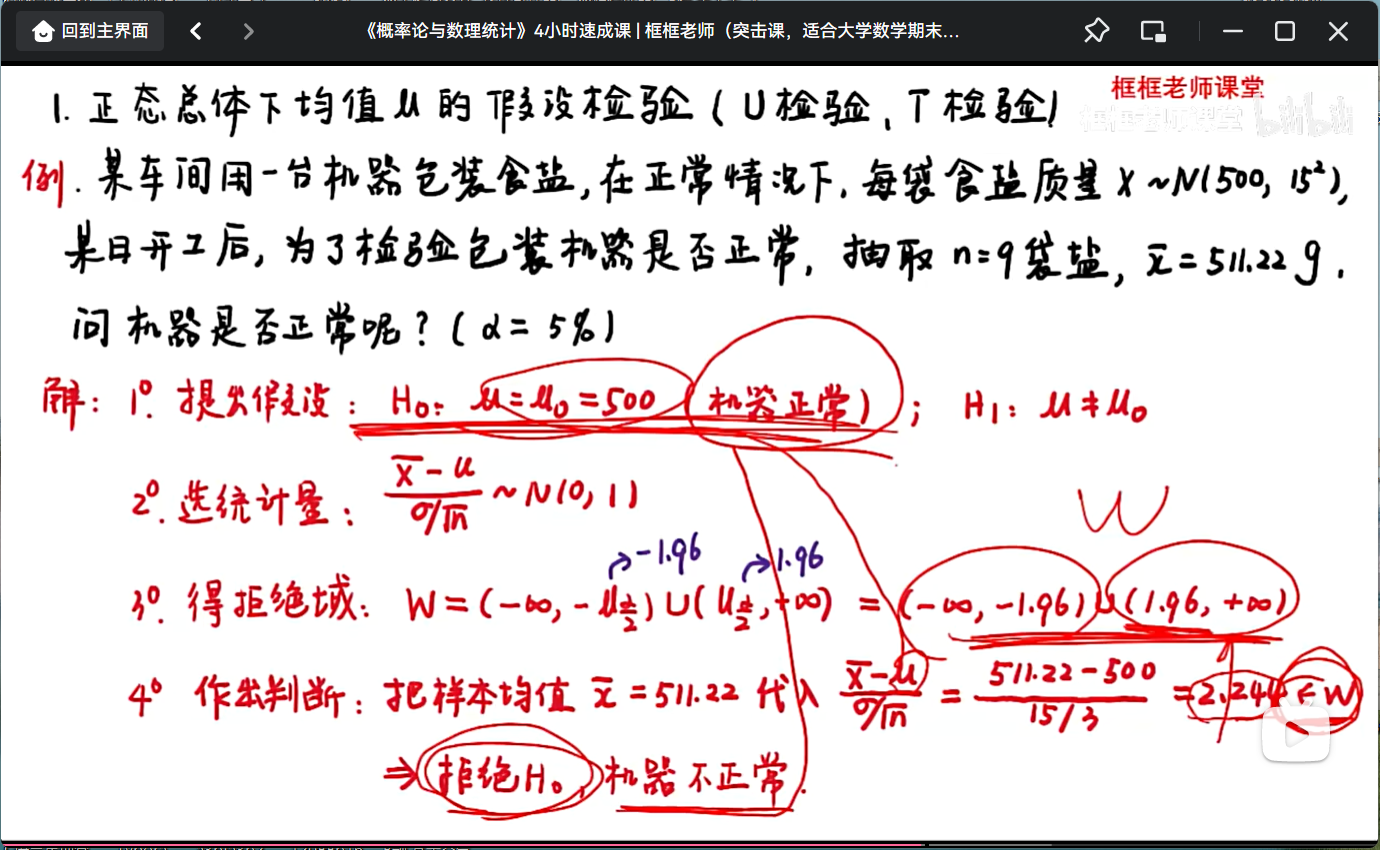 回到主界面
《概率论与数理统计》4小时速成课 | 框框老师（突击课，适合大学数学期末...
框框老师课堂
框框老师课堂 bilibili
1. 正态总体下均值μ的假设检验（U检验、T检验）
例. 某车间用一台机器包装食盐，在正常情况下，每袋食盐质量 X ~ N(500, 15²)，
某日开工后，为了检验包装机器是否正常，抽取 n=9袋盐，x̄=511.22 g.
问机器是否正常呢？（α = 5%）
解：1°. 提出假设：H₀：μ=μ₀=500（机器正常）；H₁：μ≠μ₀
2°. 选统计量：(x̄-μ)/(σ/√n) ~ N(0, 1)
W
-1.96 1.96
3°. 得拒绝域：W = (-∞, -μ_{α/2}) ∪ (μ_{α/2}, +∞) = (-∞, -1.96) ∪ (1.96, +∞)
4° 作出判断：把样本均值 x̄=511.22 代入 (x̄-μ)/(σ/√n) = (511.22-500)/(15/3) = 2.244 ∈ W
⇒ 拒绝H₀，机器不正常.